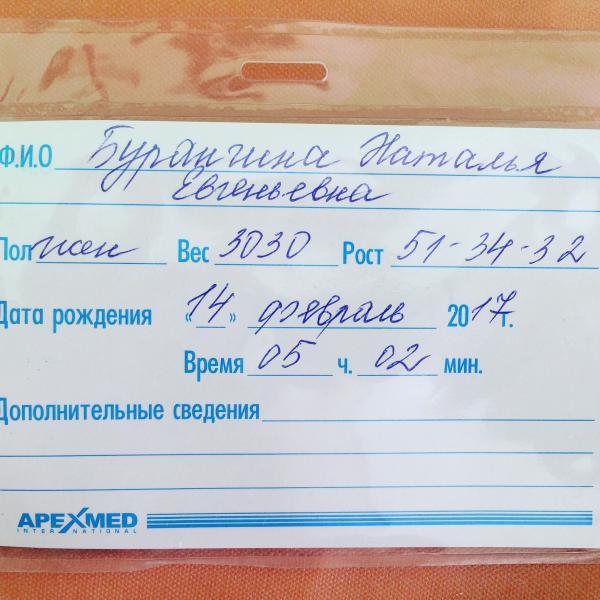 Ф.И.О Бурангина Наталья
Евгеньевна
Пол жен Вес 3030 Рост 51-34-32
Дата рождения «14» февраль 2017г.
Время 05 ч. 02 мин.
Дополнительные сведения
APEXMED
INTERNATIONAL